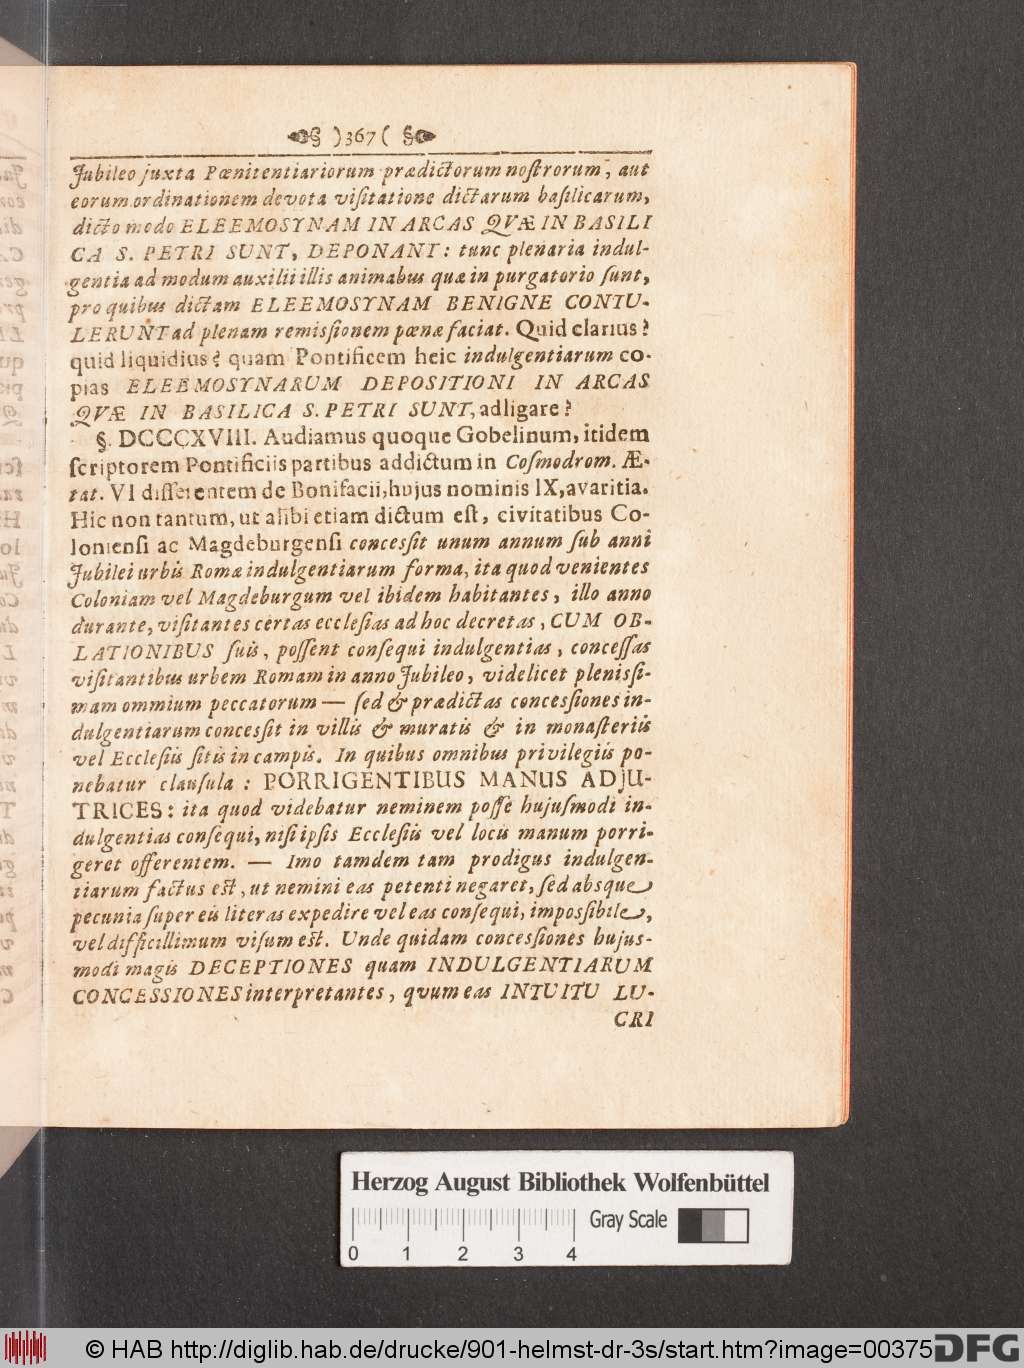 )367(
Jubileo juxta Pœnitentiariorum prædictorum nostrorum, aut
eorum ordinationem devota visitatione dictarum basilicarum,
dicto modo ELEEMOSYNAM IN ARCAS QVÆ IN BASILI
CA S. PETRI SUNT, DEPONANT: tunc plenaria indul-
gentia ad modum auxilii illis animabus quæ in purgatorio sunt,
pro quibus dictam ELEEMOSYNAM BENIGNE CONTU-
LERUNT ad plenam remissionem pœnæ faciat. Quid clarius?
quid liquidius? quam Pontificem heic indulgentiarum co-
pias ELEEMOSYNARUM DEPOSITIONI IN ARCAS
QVÆ IN BASILICA S. PETRI SUNT, adligare?
§. DCCCXVIII. Audiamus quoque Gobelinum, itidem
scriptorem Pontificiis partibus addictum in Cosmodrom. Æ-
tat. VI differentem de Bonifacii, hujus nominis IX, avaritia.
Hic non tantum, ut alibi etiam dictum est, civitatibus Co-
loniensi ac Magdeburgensi concessit unum annum sub anni
Jubilei urbis Romæ indulgentiarum forma, ita quod venientes
Coloniam vel Magdeburgum vel ibidem habitantes, illo anno
durante, visitantes certas ecclesias ad hoc decretas, CUM OB-
LATIONIBUS suis, possent consequi indulgentias, concessas
visitantibus urbem Romam in anno Jubileo, videlicet plenissi-
mam omnium peccatorum — sed & prædictas concessiones in-
dulgentiarum concessit in villis & muratis & in monasteriis
vel Ecclesiis sitis in campis. In quibus omnibus privilegiis po-
nebatur clausula: PORRIGENTIBUS MANUS ADJU-
TRICES: ita quod videbatur neminem posse hujusmodi in-
dulgentias consequi, nisi ipsis Ecclesiis vel locis manum porri-
geret offerentem. — Imo tamdem tam prodigus indulgen-
tiarum factus est, ut nemini eas petenti negaret, sed absque
pecunia super eis literas expedire vel eas consequi, impossibile,
vel difficillimum visum est. Unde quidam concessiones hujus-
modi magis DECEPTIONES quam INDULGENTIARUM
CONCESSIONES interpretantes, qvum eas INTUITU LU-
CRI
Herzog August Bibliothek Wolfenbüttel
Gray Scale
0 1 2 3 4
© HAB http://diglib.hab.de/drucke/901-helmst-dr-3s/start.htm?image=00375 DFG